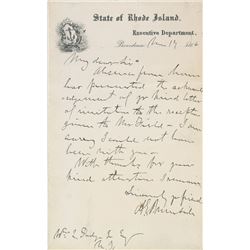 State of Rhode Island,
Executive Department.
Providence 186
My dear Sir
Absence from home
has prevented the acknowl
edgement of yr kind letter
of invitation to the reception
given to Mr Field - I am
sorry I could not have
been with you -
With thanks for your
kind attention I remain
Sincerely yr friend
Wm E Dodge Jr Esq
N. Y.